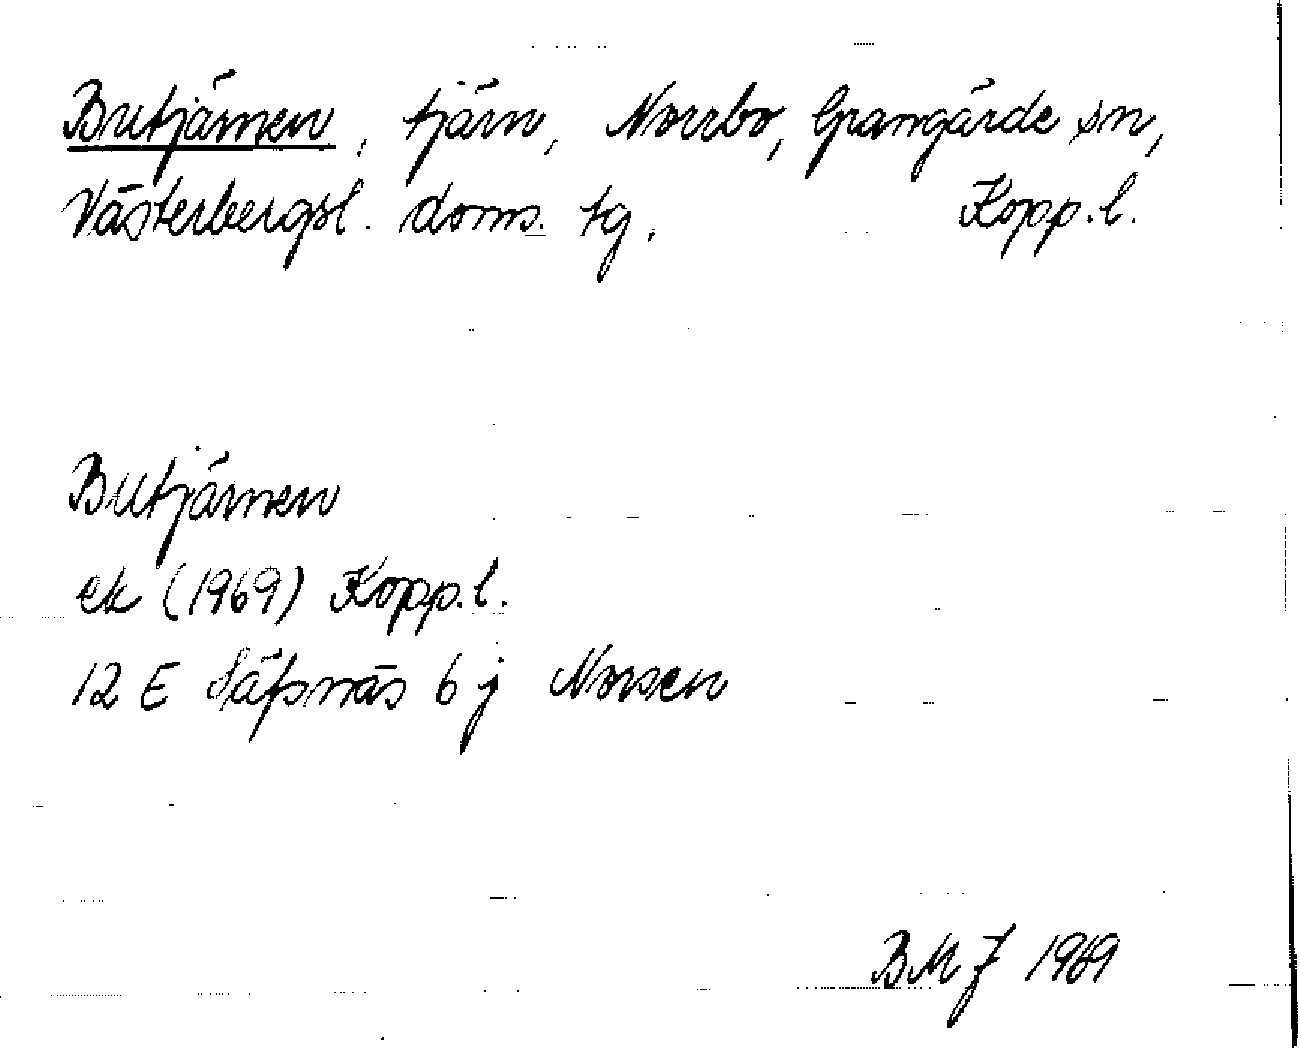 Butjärnen, tjärn, Norrbo, Grangärde sn,
Västerbergsl. doms. tg. Kopp.l.
Butjärnen
ek (1969) Kopp.l.
12 E Säfsnäs 6 j Norsen
BMJ 1969